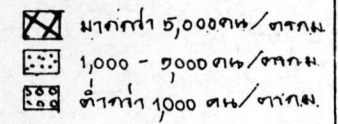 มากกว่า 5,000 คน/ตร.กม.
1,000 - 5,000 คน/ตร.กม.
ต่ำกว่า 1,000 คน/ตร.กม.